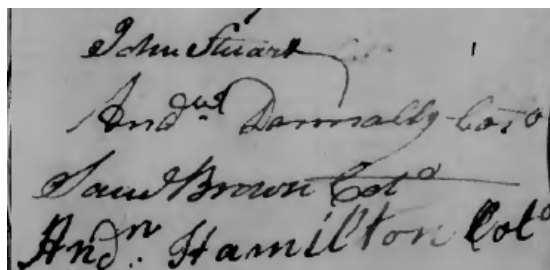 John Stuart
Andw Donnally Colo
Saml Brown Colo
Andn. Hamilton Colo